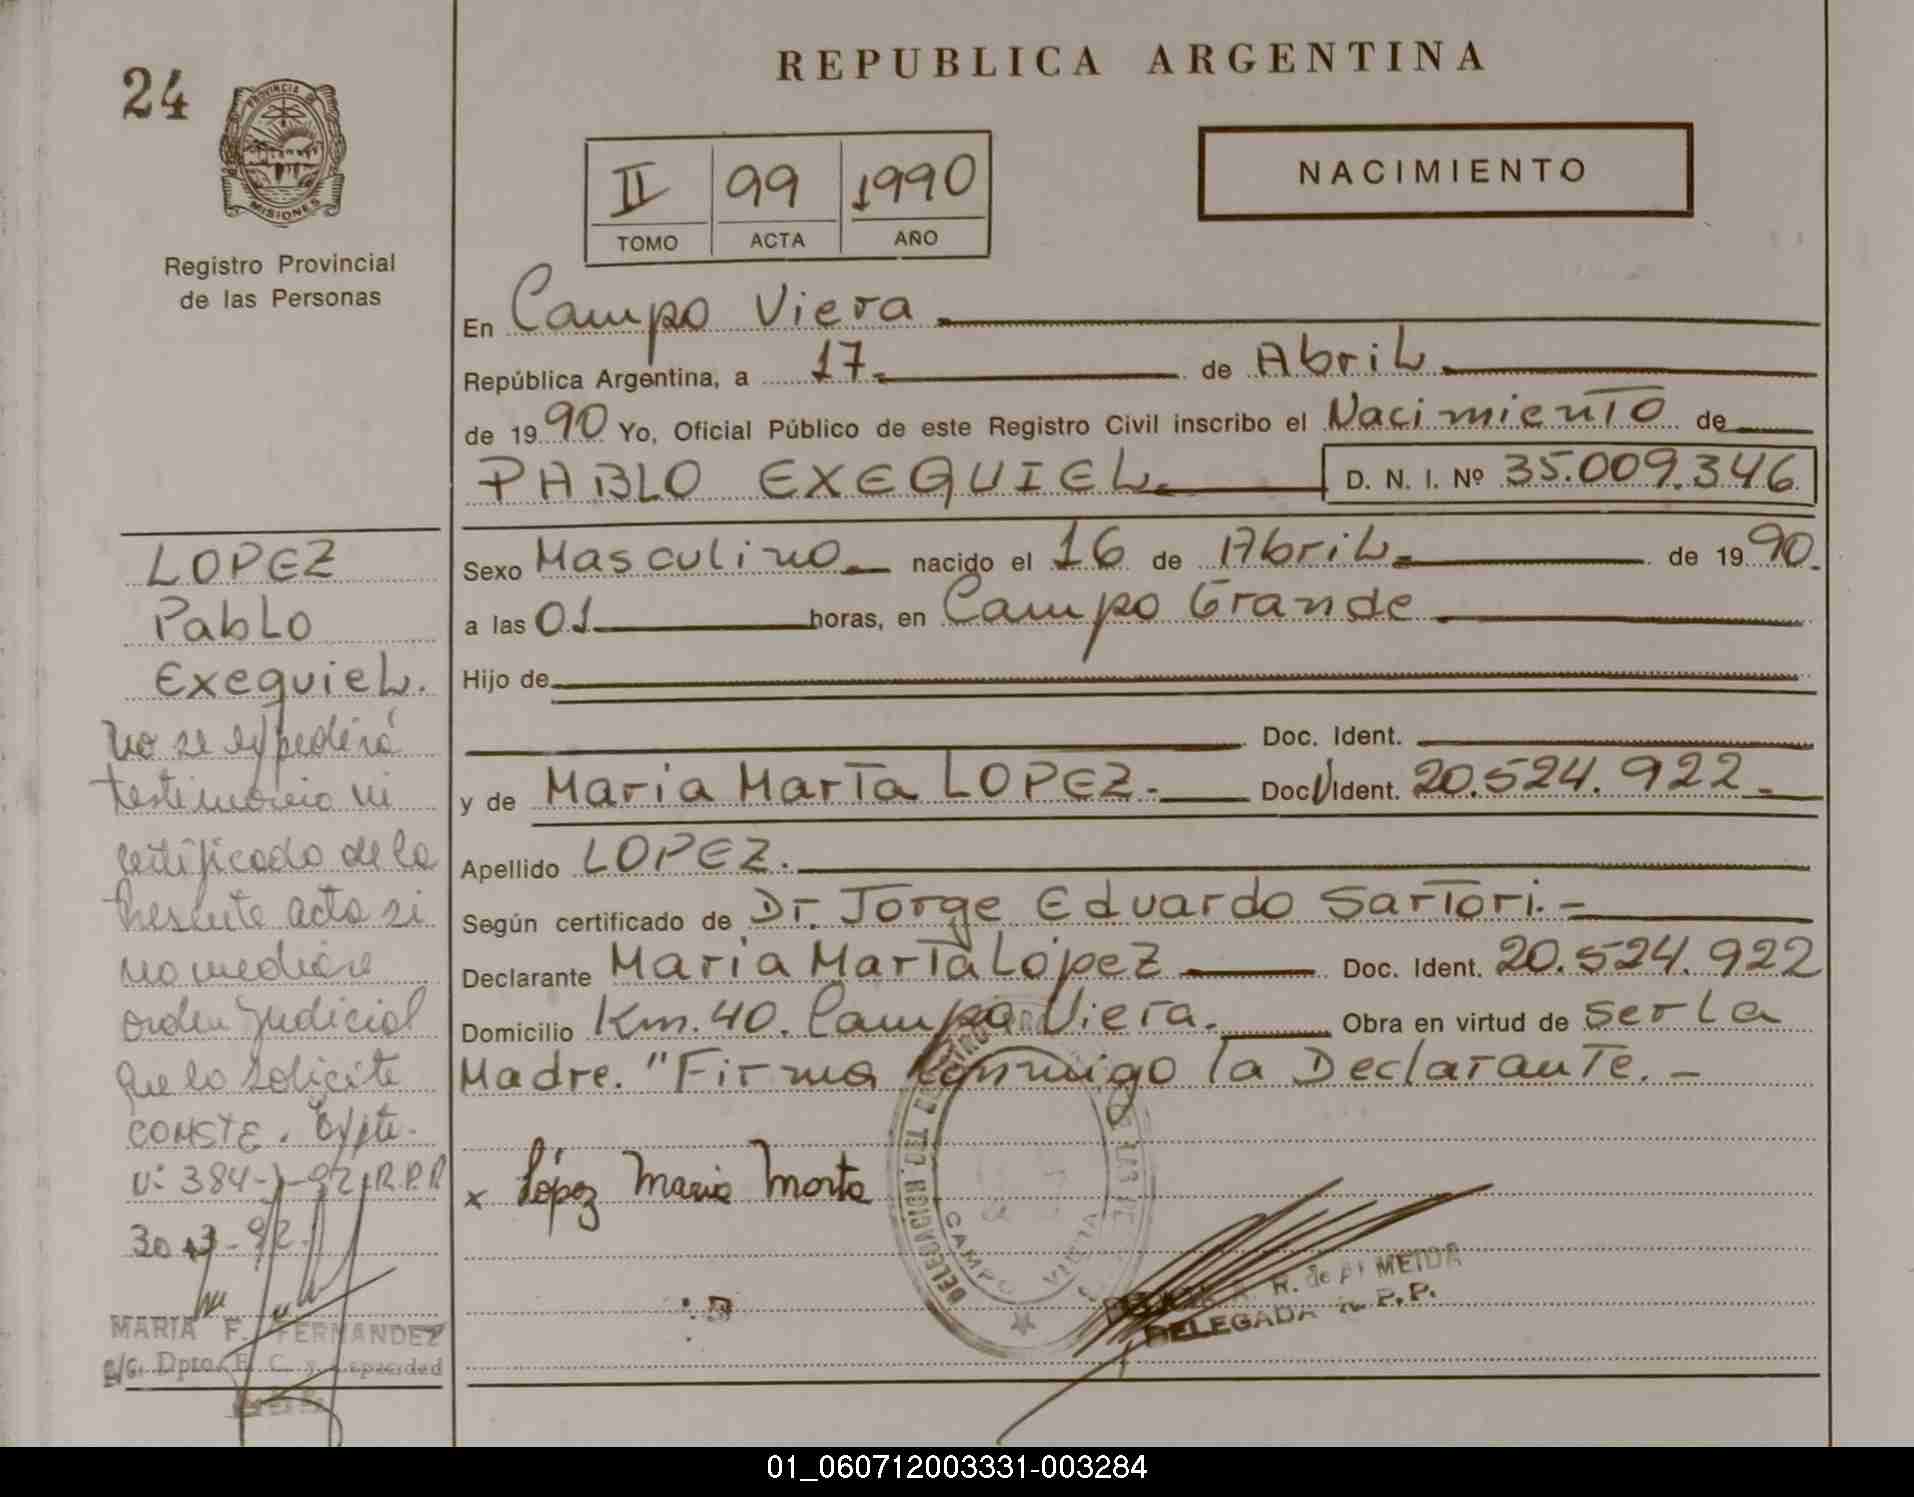 24
PROVINCIA DE
MISIONES
Registro Provincial
de las Personas
REPUBLICA ARGENTINA
II 99 1990
TOMO ACTA AÑO
NACIMIENTO
En Campo Viera
República Argentina, a 17 de Abril
de 1990 Yo, Oficial Público de este Registro Civil inscribo el Nacimiento de
PABLO EXEQUIEL D. N. I. Nº 35.009.346
Sexo Masculino nacido el 16 de Abril de 1990.
a las 01 horas, en Campo Grande
Hijo de
Doc. Ident.
y de Maria Marta LOPEZ.- Doc. Ident. 20.524.922-
Apellido LOPEZ.
Según certificado de Dr. Jorge Eduardo Sartori.-
Declarante Maria Marta López Doc. Ident. 20.524.922
Domicilio Km. 40. Campo Viera. Obra en virtud de ser la
Madre. "Firma Conmigo la Declarante.-
x López Maria Marta
CAMPO VIERA
R. de ALMEIDA
DELEGADA R.P.P.
LOPEZ
Pablo
Exequiel.
No se expedirá
testimonio ni
certificado de la
presente acta si
no mediare
orden judicial
que lo solicite
CONSTE. Expte.
Nº 384-
MARIA F. FERNANDEZ
a/c. Dpto. E. C. y Capacidad
01_060712003331-003284